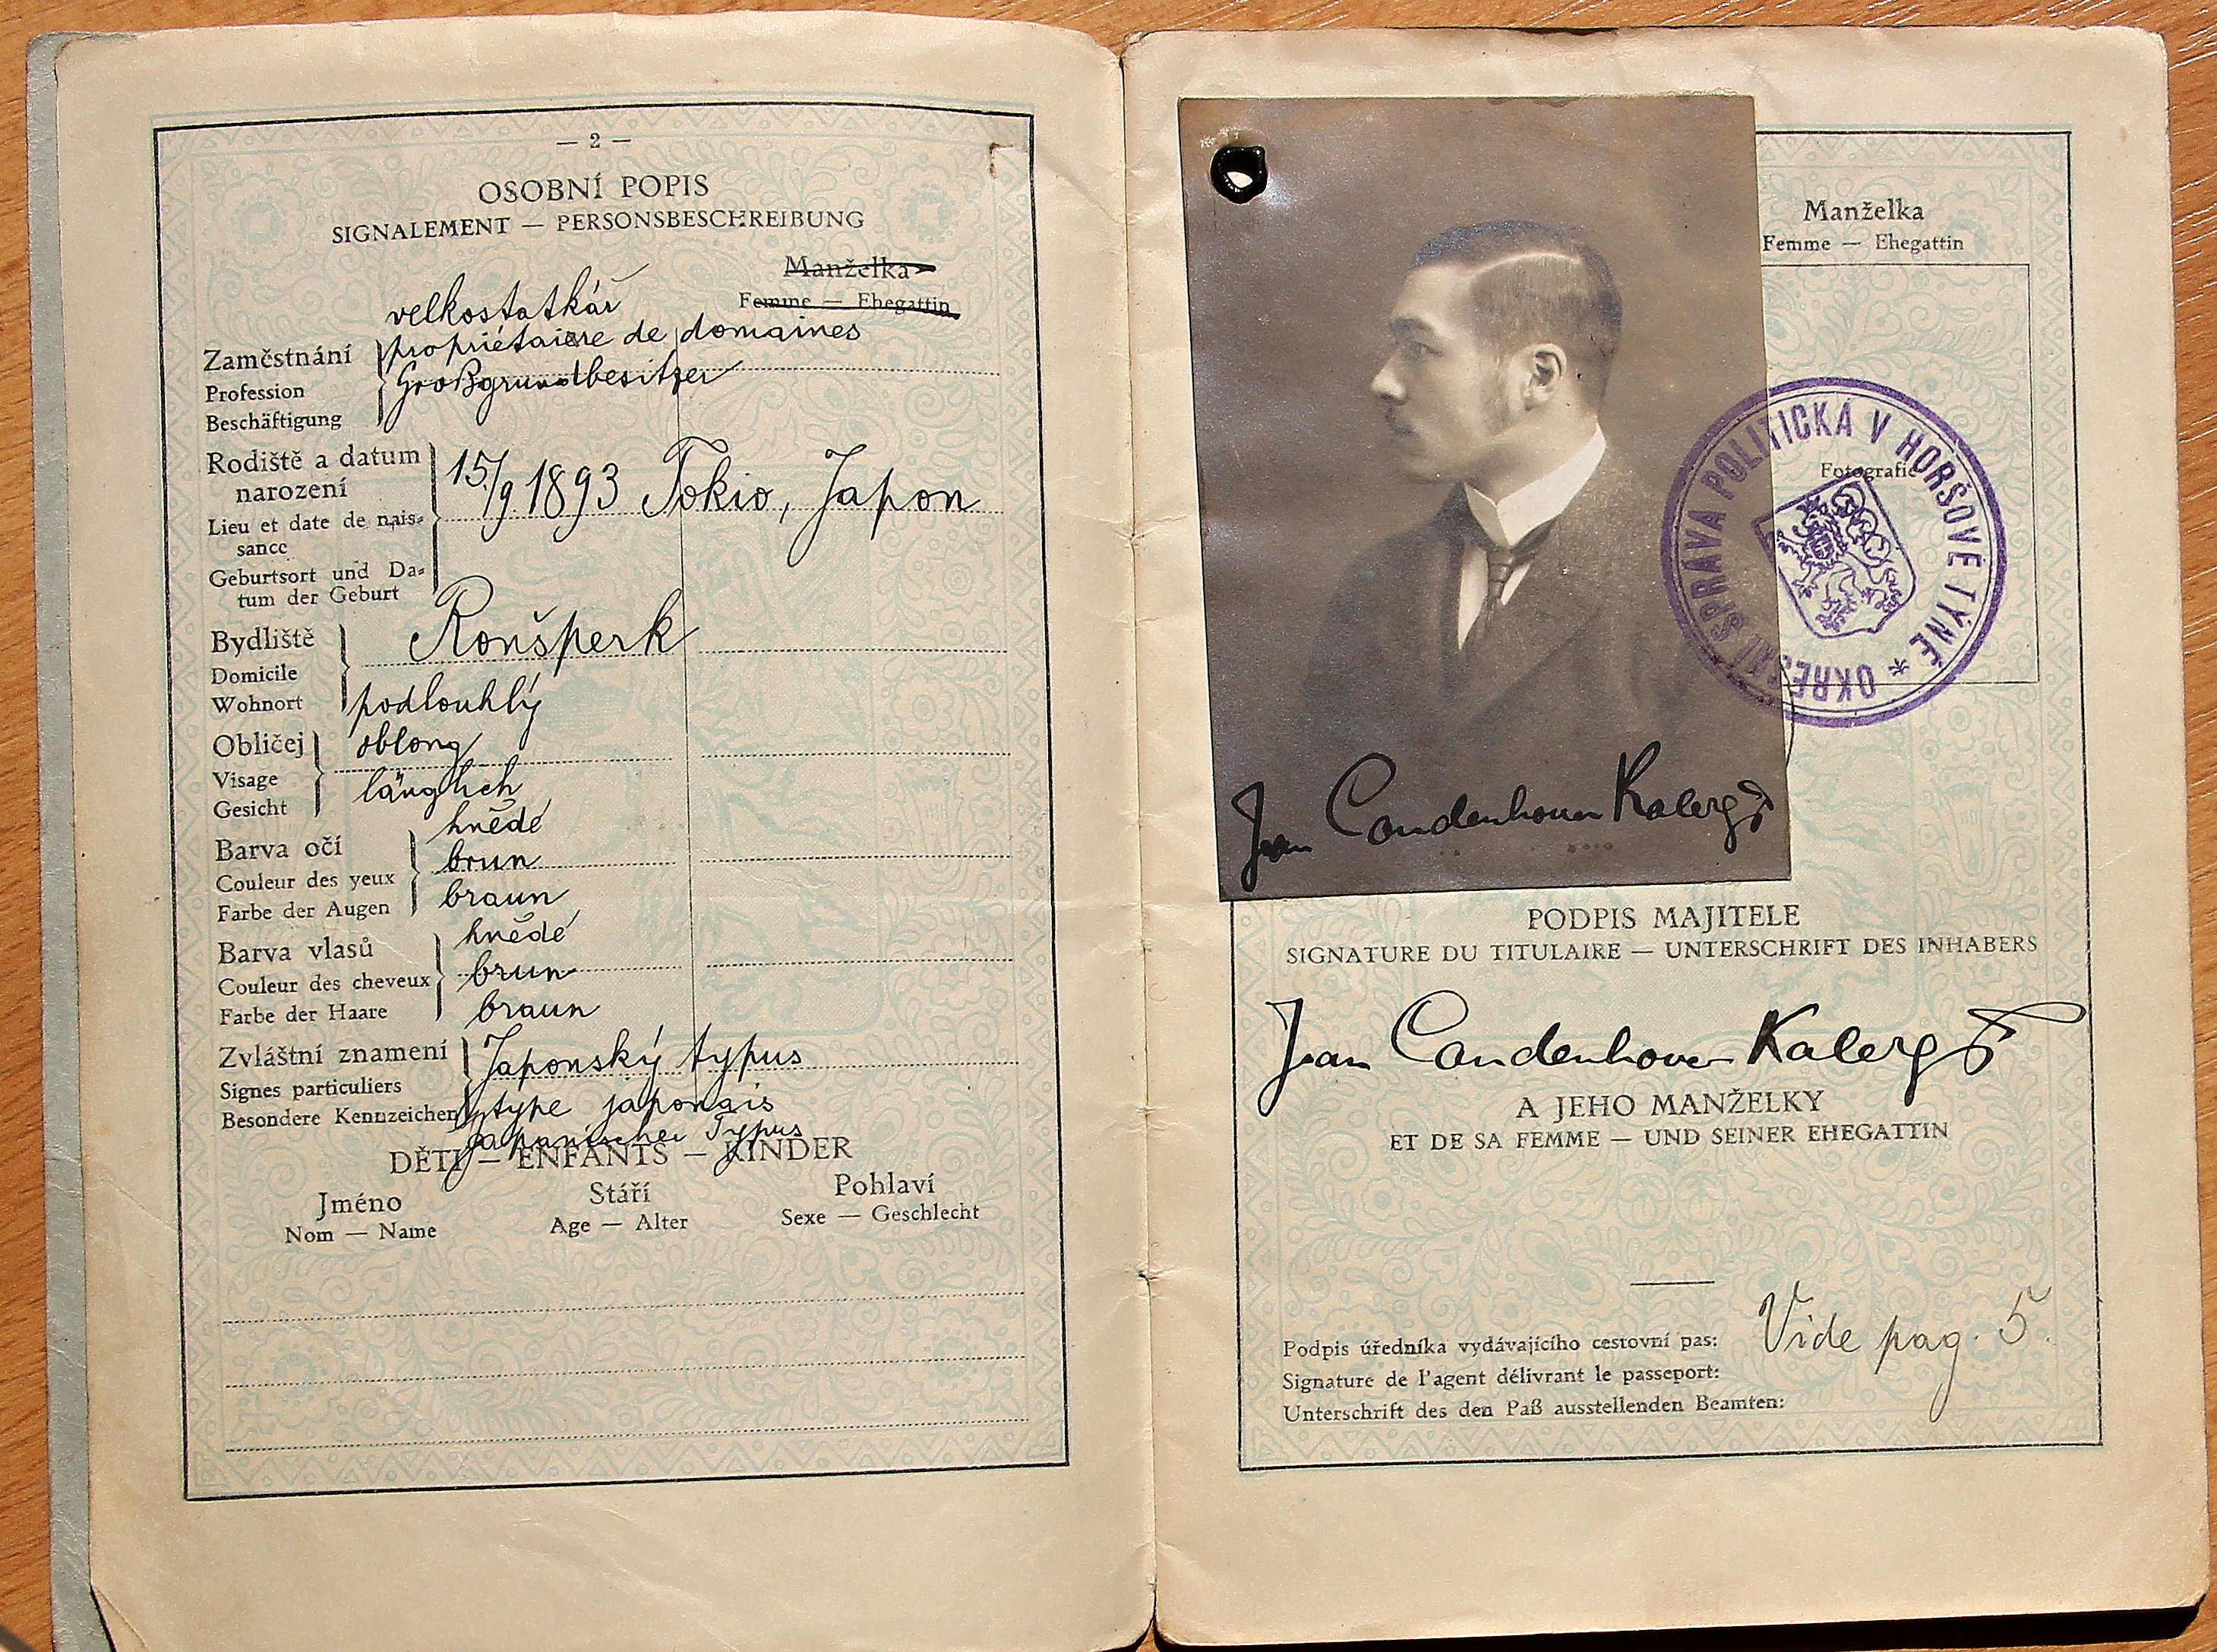 — 2 —
OSOBNÍ POPIS
SIGNALEMENT — PERSONSBESCHREIBUNG
Manželka
Femme — Ehegattin
velkostatkář
Zaměstnání propriétaire de domaines
Profession Großgrundbesitzer
Beschäftigung
Rodiště a datum
narození
15./9. 1893 Tokio, Japon
Lieu et date de nais=
sance
Geburtsort und Da=
tum der Geburt
Bydliště Ronšperk
Domicile
Wohnort
podlouhlý
Obličej oblong
Visage
länglich
Gesicht
hnědé
Barva očí brun
Couleur des yeux
braun
Farbe der Augen
hnědé
Barva vlasů
Couleur des cheveux brun
Farbe der Haare braun
Zvláštní znamení Japonský typus
Signes particuliers
Besondere Kennzeichen type japonais
japanischer Typus
DĚTI — ENFANTS — KINDER
Jméno Stáří Pohlaví
Nom — Name Age — Alter Sexe — Geschlecht
Manželka
Femme — Ehegattin
Fotografie
OKRESNÍ SPRÁVA POLITICKÁ V HORŠOVĚ TÝNĚ *
Jean Coudenhove Kalergi
PODPIS MAJITELE
SIGNATURE DU TITULAIRE — UNTERSCHRIFT DES INHABERS
Jean Coudenhove Kalergi
A JEHO MANŽELKY
ET DE SA FEMME — UND SEINER EHEGATTIN
Podpis úředníka vydávajícího cestovní pas: Vide pag. 5.
Signature de l'agent délivrant le passeport:
Unterschrift des den Paß ausstellenden Beamten: